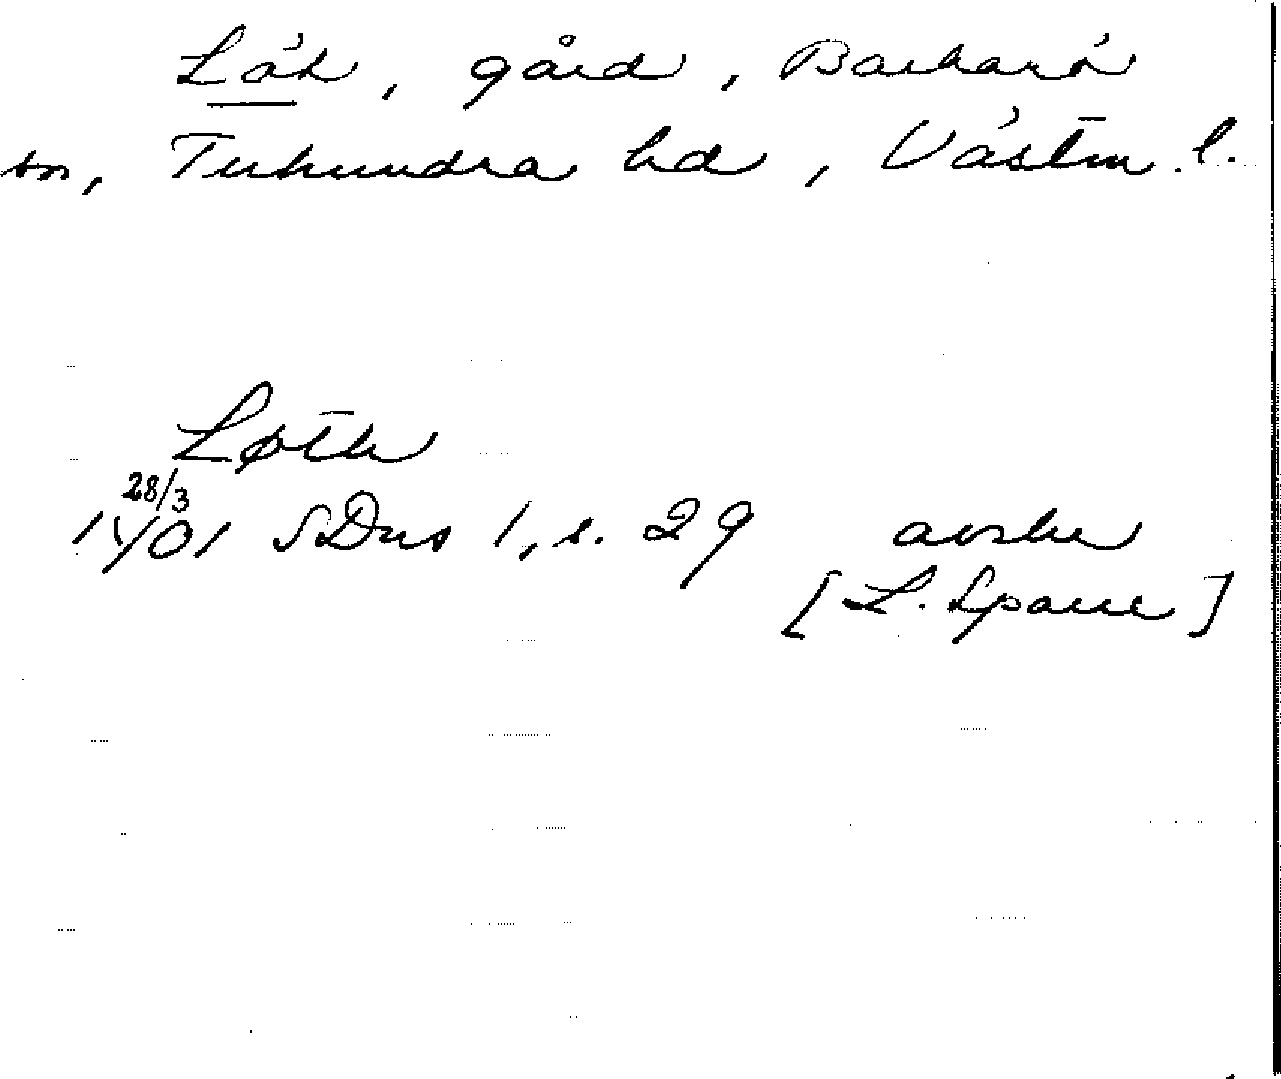 Lök, gård, Barkarö
sn, Tuhundra hd, Västm. l.
Løth
28/3
1401 SDns 1, s. 29 avskr
[L. Sparre]